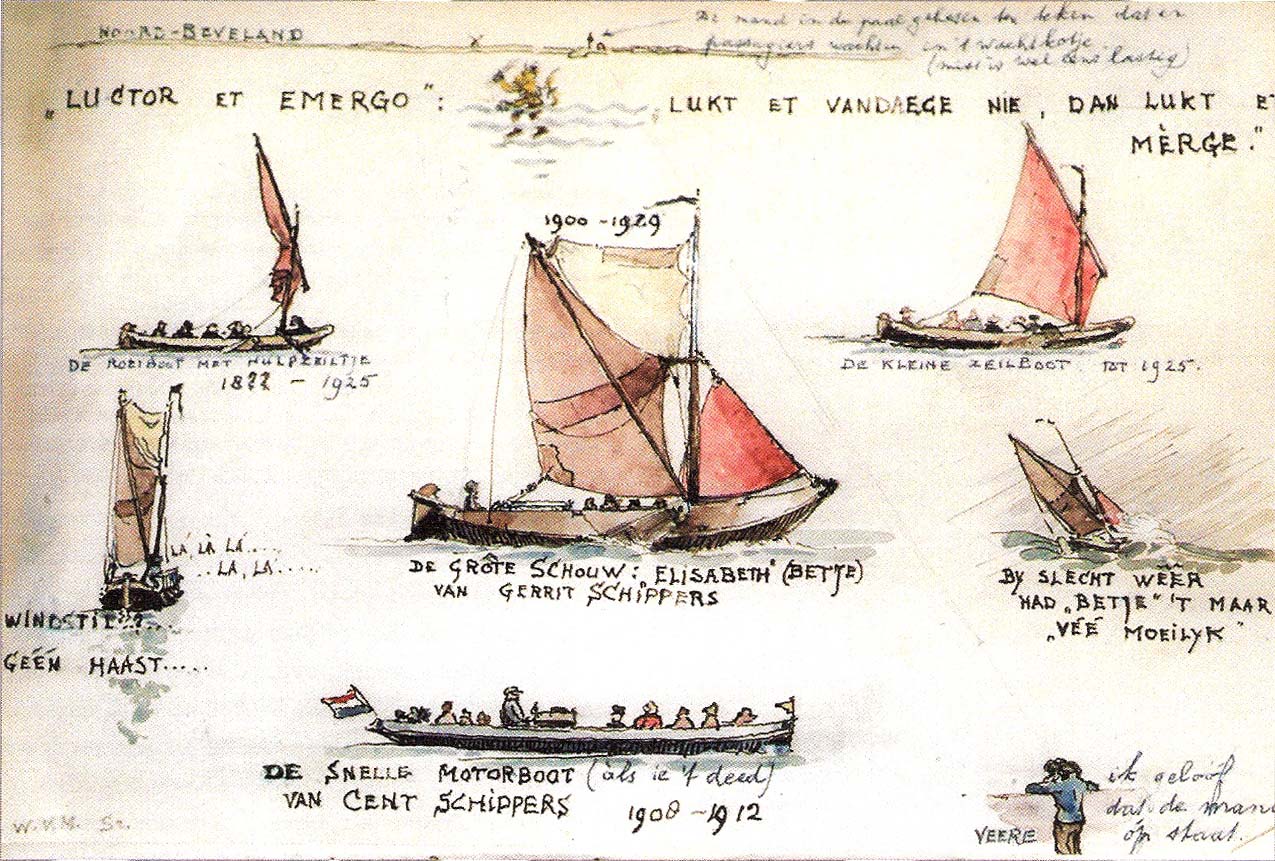 NOORD-BEVELAND
De mand in de paal gehesen ten teken dat er
passagiers wachten in 't wachtkotje
(mist is wel eens lastig)
„LUCTOR ET EMERGO":
„LUKT ET VANDAEGE NIE, DAN LUKT ET
MÈRGE."
1900 - 1929
DE ROEIBOOT MET HULPZEILTJE
18?? - 1925
DE KLEINE ZEILBOOT. TOT 1925.
LA, LA LA....
..LA, LA.....
WINDSTIL??...
GEÉN HAAST.....
DE GRÔTE SCHOUW: „ELISABETH" (BETJE)
VAN GERRIT SCHIPPERS
BY SLECHT WÊÊR
HAD „BETJE" 'T MAAR
„VEÉ MOEILYK"
DE SNELLE MOTORBOOT (àls ie 't deed)
VAN CENT SCHIPPERS 1908 - 1912
ik geloof
dat de mand
op staat.
VEERE
W.V.M. Sr.